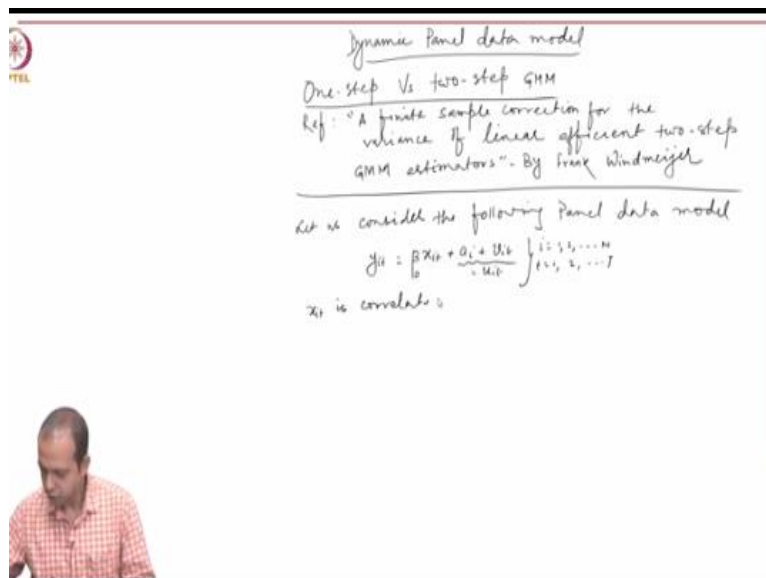 PTEL
Dynamic Panel data model
One-step Vs two-step GMM
Ref: "A finite sample correction for the
variance of linear efficient two-step
GMM estimators" - By Frank Windmeijer
Let us consider the following Panel data model
yit = β0 xit + ai + vit } i = 1, 2, ... N
= uit t = 1, 2, ... T
xit is correlate